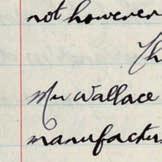 not however
Mr Wallace
manufactu